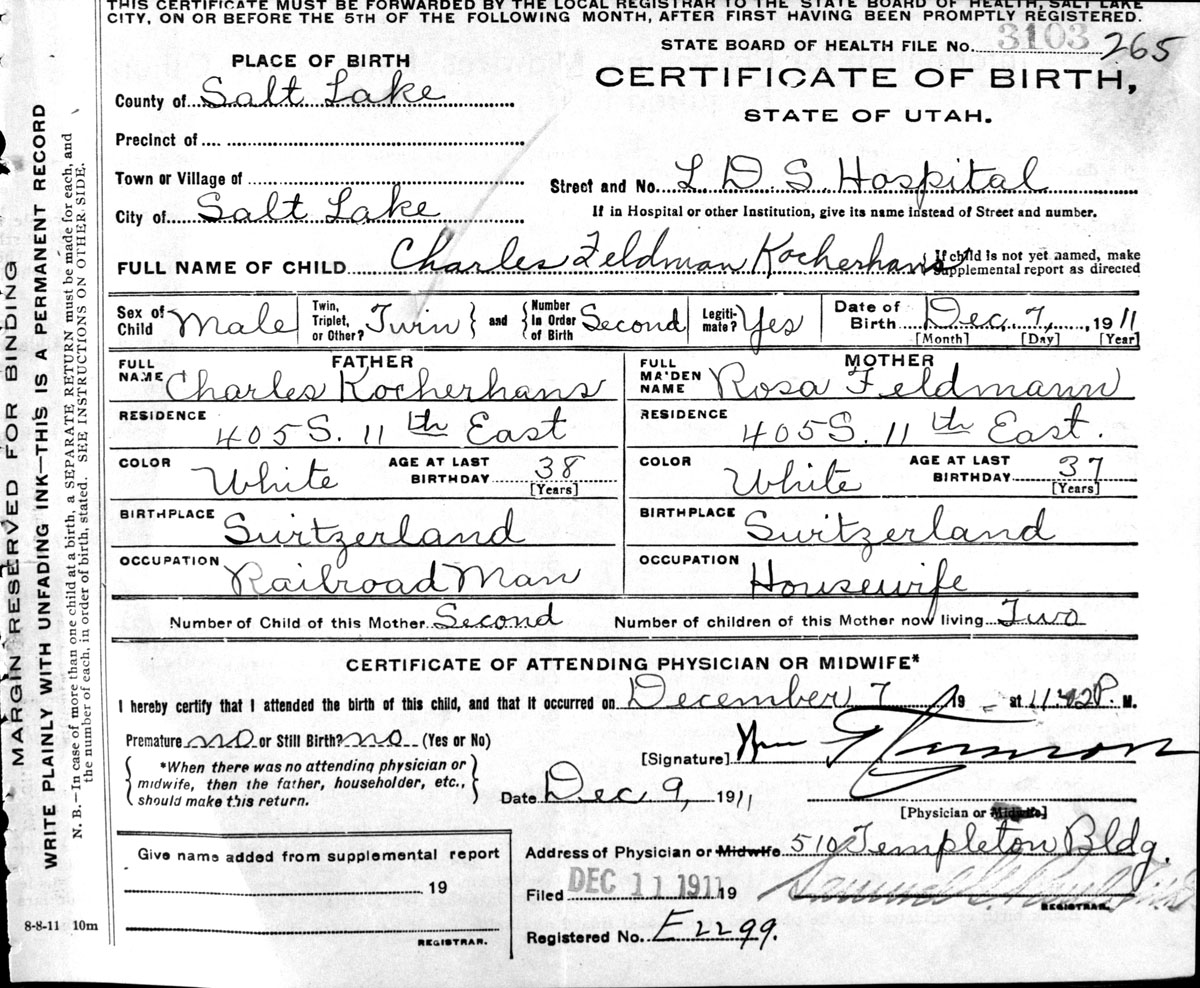 THIS CERTIFICATE MUST BE FORWARDED BY THE LOCAL REGISTRAR TO THE STATE BOARD OF HEALTH, SALT LAKE
CITY, ON OR BEFORE THE 5TH OF THE FOLLOWING MONTH, AFTER FIRST HAVING BEEN PROMPTLY REGISTERED.
STATE BOARD OF HEALTH FILE No. 3103 265
PLACE OF BIRTH
CERTIFICATE OF BIRTH,
STATE OF UTAH.
County of Salt Lake
Precinct of
Town or Village of
Street and No. L D S Hospital
City of Salt Lake
If in Hospital or other Institution, give its name instead of Street and number.
FULL NAME OF CHILD Charles Feldman Kocherhans
If child is not yet named, make
supplemental report as directed
Sex of Child Male
Twin, Triplet, or Other? Twin } and { Number in Order of Birth Second
Legitimate? Yes
Date of Birth Dec. 7, 1911
[Month] [Day] [Year]
FATHER
FULL NAME Charles Kocherhans
RESIDENCE 405 S. 11th East
COLOR White AGE AT LAST BIRTHDAY 38 [Years]
BIRTHPLACE Switzerland
OCCUPATION Railroad Man
MOTHER
FULL MAIDEN NAME Rosa Feldmann
RESIDENCE 405 S. 11th East.
COLOR White AGE AT LAST BIRTHDAY 37 [Years]
BIRTHPLACE Switzerland
OCCUPATION Housewife
Number of Child of this Mother Second Number of children of this Mother now living Two
CERTIFICATE OF ATTENDING PHYSICIAN OR MIDWIFE*
I hereby certify that I attended the birth of this child, and that it occurred on December 7 19 at 11:42 P. M.
Premature no or Still Birth? no (Yes or No)
{ *When there was no attending physician or
midwife, then the father, householder, etc.,
should make this return. }
[Signature] Wm
Date Dec 9, 1911
[Physician or Midwife]
Address of Physician or Midwife 510 Templeton Bldg.
Filed DEC 11 1911 19
REGISTRAR.
Registered No. E 2299.
Give name added from supplemental report
19
REGISTRAR.
8-8-11 10m
MARGIN RESERVED FOR BINDING
WRITE PLAINLY WITH UNFADING INK—THIS IS A PERMANENT RECORD
N. B.—In case of more than one child at a birth, a SEPARATE RETURN must be made for each, and
the number of each, in order of birth, stated. SEE INSTRUCTIONS ON OTHER SIDE.